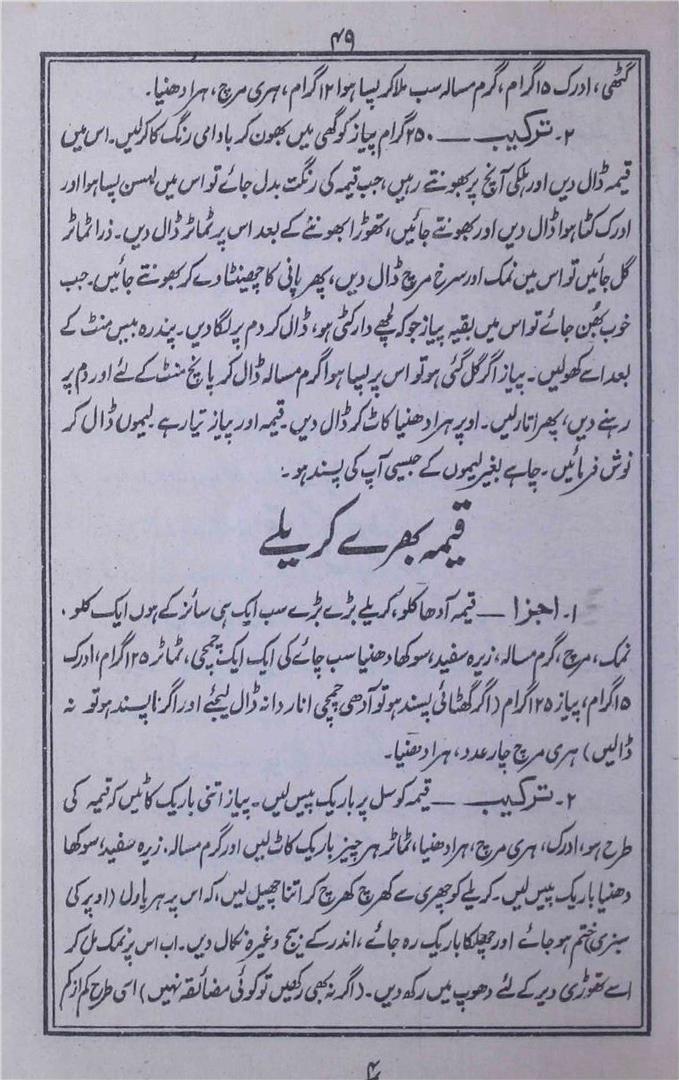 ۴۹
گٹھی، ادرک ۱۵ گرام، گرم مسالہ سب ملا کر پسا ہوا ۱۲ گرام، ہری مرچ، ہرا دھنیا۔
۲۔ ترکیب — ۲۵۰ گرام پیاز کو گھی میں بھون کر بادامی رنگ کا کرلیں۔ اس میں
قیمہ ڈال دیں اور ہلکی آنچ پر بھونتے رہیں، جب قیمہ کی رنگت بدل جائے تو اس میں لہسن پسا ہوا اور
ادرک کٹا ہوا ڈال دیں اور بھونتے جائیں، تھوڑا بھوننے کے بعد اس پر ٹماٹر ڈال دیں۔ ذرا ٹماٹر
گل جائیں تو اس میں نمک اور سرخ مرچ ڈال دیں، پھر پانی کا چھینٹا دے کر بھونتے جائیں۔ جب
خوب بھُن جائے تو اس میں بقیہ پیاز جو کہ لچھے دار کٹی ہو، ڈال کر دم پر لگا دیں۔ پندرہ بیس منٹ کے
بعد اسے کھولیں۔ پیاز اگر گل گئی ہو تو اس پر پسا ہوا گرم مسالہ ڈال کر پانچ منٹ کے لئے اور دم پر
رہنے دیں، پھر اتار لیں۔ اوپر ہرا دھنیا کاٹ کر ڈال دیں۔ قیمہ اور پیاز تیار ہے لیموں ڈال کر
نوش فرمائیں۔ چاہے بغیر لیموں کے جیسی آپ کی پسند ہو۔
قیمہ بھرے کریلے
۱۔ اجزا — قیمہ آدھا کلو، کریلے بڑے بڑے سب ایک ہی سائز کے ہوں ایک کلو۔
نمک، مرچ، گرم مسالہ، زیرہ سفید، سوکھا دھنیا سب چائے کی ایک ایک چمچی، ٹماٹر ۱۲۵ گرام، ادرک
۱۵ گرام، پیاز ۱۲۵ گرام (اگر کھٹائی پسند ہو تو آدھی چمچی انار دانہ ڈال لیجئے اور اگر نا پسند ہو تو نہ
ڈالیں) ہری مرچ چار عدد، ہرا دھنیا۔
۲۔ ترکیب — قیمہ کو سل پر باریک پیس لیں۔ پیاز اتنی باریک کاٹیں کہ قیمہ کی
طرح ہو، ادرک، ہری مرچ، ہرا دھنیا، ٹماٹر ہر چیز باریک کاٹ لیں اور گرم مسالہ، زیرہ سفید، سوکھا
دھنیا باریک پیس لیں۔ کریلے کو چھری سے کھرچ کھرچ کر اتنا چھیل لیں، کہ اس پر ہر یاول (اوپر کی
سبزی ختم ہو جائے اور چھلکا باریک رہ جائے، اندر کے بیج وغیرہ نکال دیں۔ اب اس پر نمک مل کر
اسے تھوڑی دیر کے لئے دھوپ میں رکھ دیں۔ (اگر نہ بھی رکھیں تو کوئی مضائقہ نہیں) اسی طرح کم از کم
۴